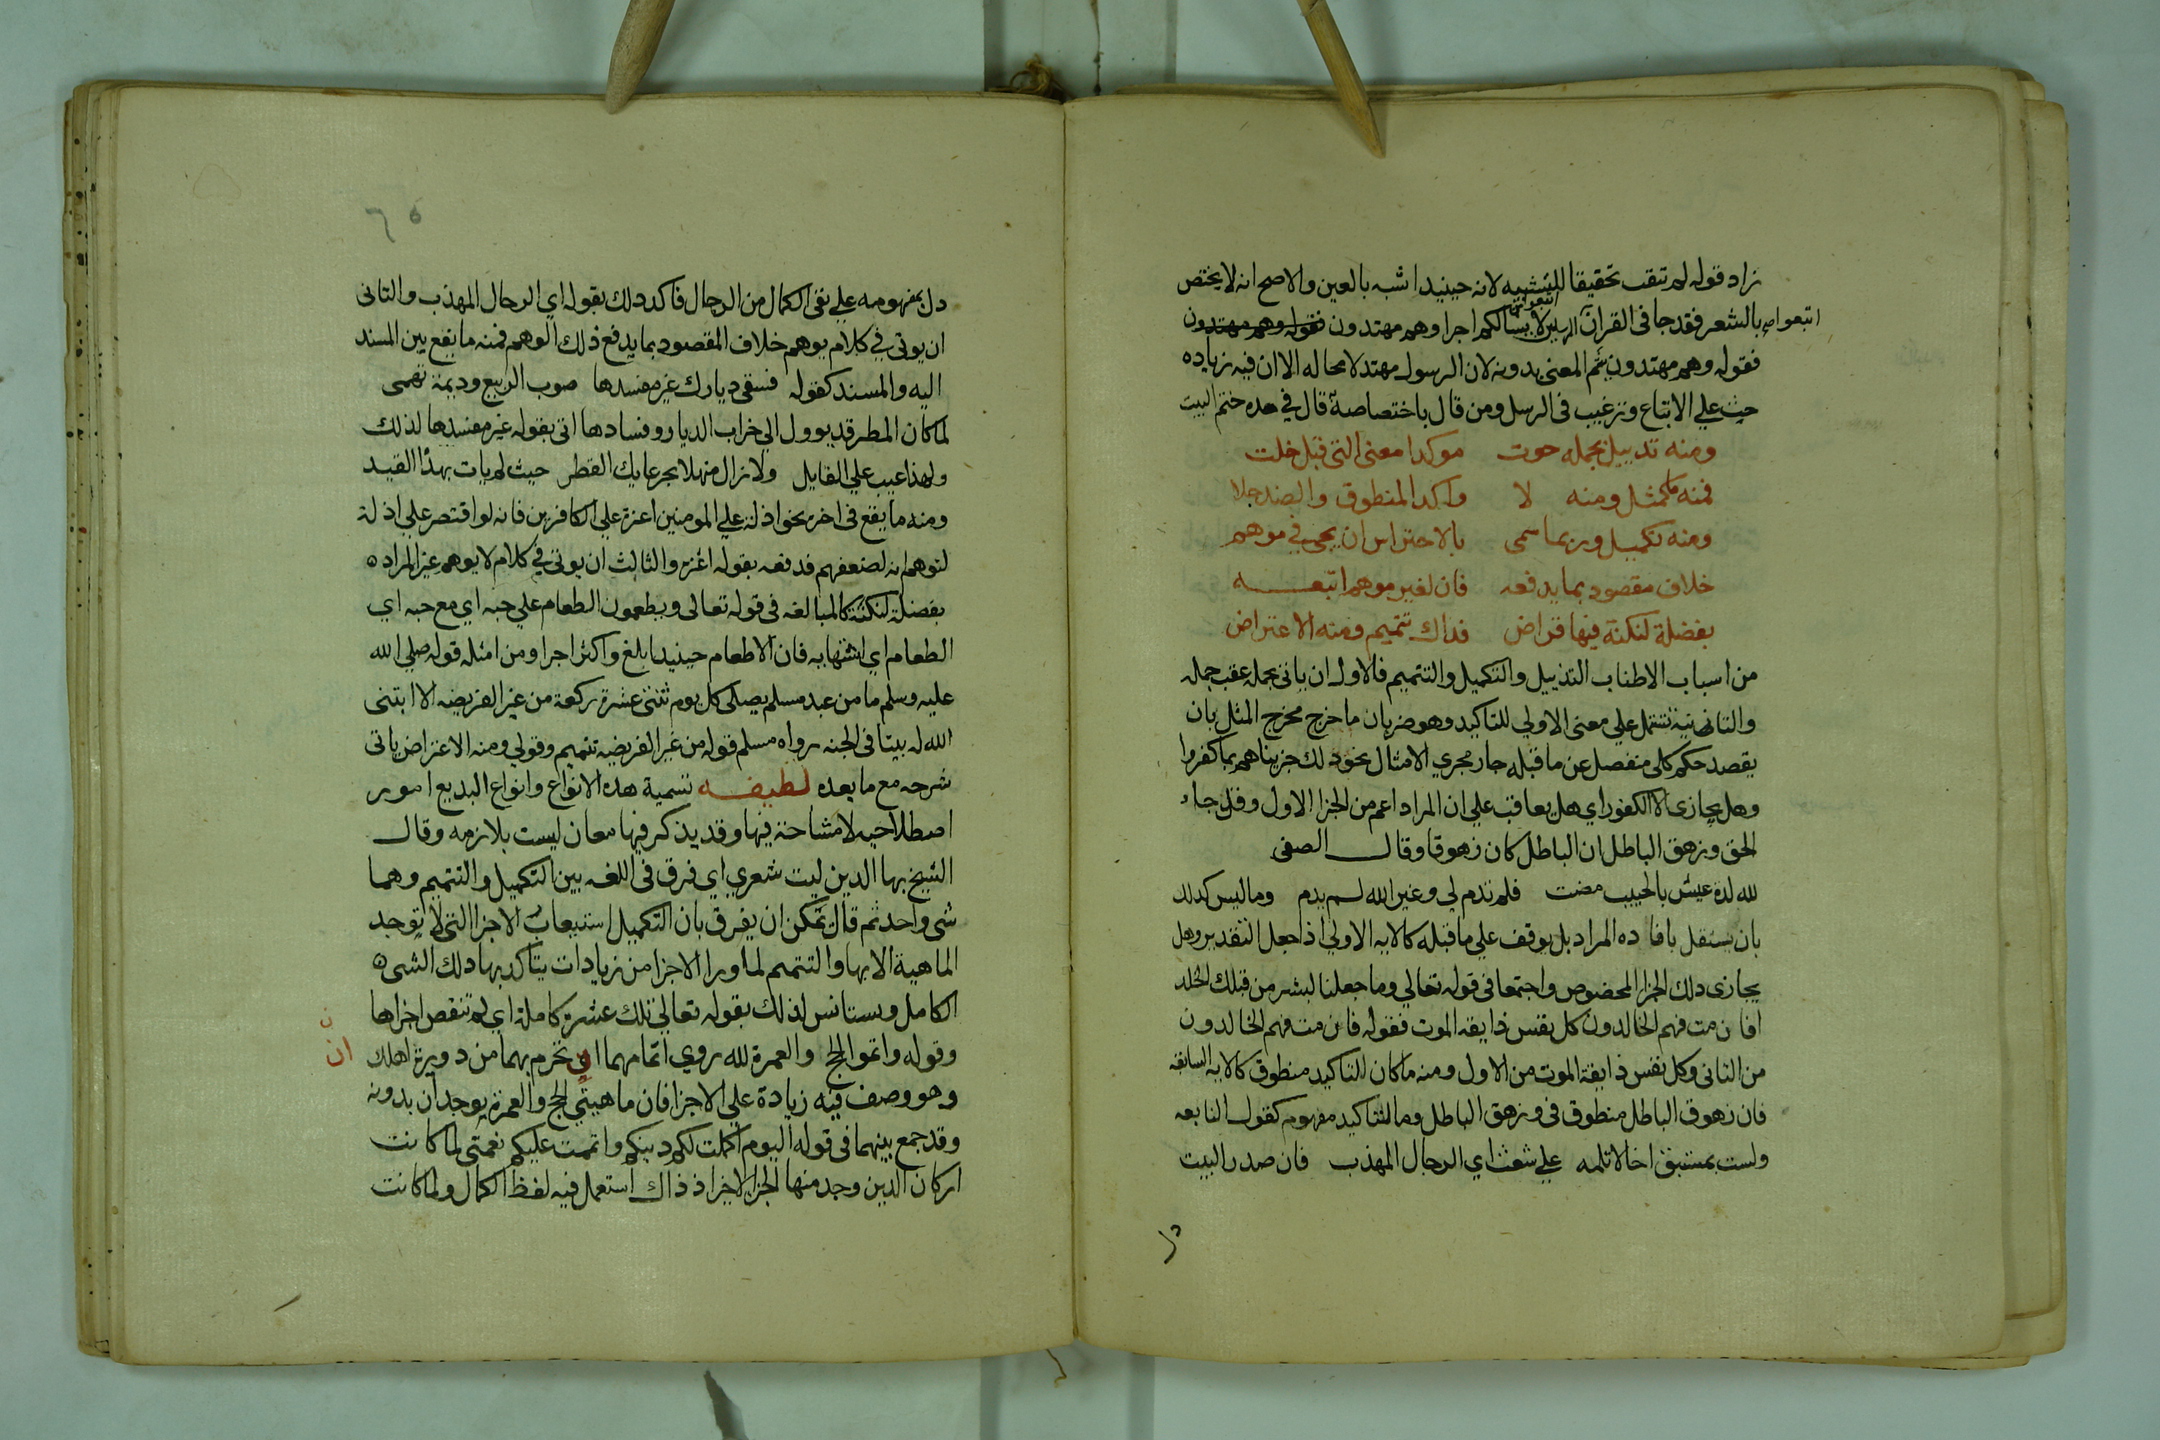 زاد قوله لم تنقب تحقيقا للتشبيه لانه حينيد اشبه بالعين والاصح انه لا يختص
بالشعر فقد جا فى القران اتبعوا المرسلين اتبعوا من لا يسالكم اجرا وهم مهتدون فقوله وهم مهتدون
فقوله وهم مهتدون يتم المعنى بدونه لان الرسول مهتد لا محاله الا ان فيه زياده
حث علي الاتباع وترغيب فى الرسل ومن قال باختصاصه قال في هده ختم البيت
ومنه تدييل بجمله حوت موكدا معنى التى قبل خلت
فمنه كمثل ومنه لا واكد المنطوق والضد جلا
ومنه تكميل وربما سمى بالاحتراس ان يجى في موهم
خلاف مقصود بما يدفعه فان لغير موهم اتبعه
بفضلة لنكتة فيها قراض فداك تتميم ومنه الاعتراض
من اسباب الاطناب التذييل والتكميل والتتميم فالاول ان ياتى بجمله عقب جمله
والثانيه تشتمل علي معنى الاولي للتاكيد وهو ضربان ما خرج مخرج المثل بان
يقصد حكم كلى منفصل عن ما قبله جار مجري الامثال نحو ذلك جزيناهم بما كفروا
وهل يجازى الا الكفور اي هل يعاقب علي ان المراد اعم من الجزا الاول وقل جاء
الحق وزهق الباطل ان الباطل كان زهوقا وقال الصفى
لله لدة عيش بالحبيب مضت فلم تدم لي وغير الله لم يدم وما ليس كدلك
بان يستقل بافاده المراد بل يوقف علي ما قبله كالايه الاولي اذا جعل التقدير وهل
يجازى دلك الجزا المخصوص واجتمعا فى قوله تعالي وما جعلنا لبشر من قبلك الخلد
افان مت فهم الخالدون كل نفس ذايقه الموت فقوله فان مت فهم الخالدون
من الثانى وكل نفس ذايقة الموت من الاول ومنه ما كان للتاكيد منطوق كالايه السابقه
فان زهوق الباطل منطوق فى وزهق الباطل وما لتاكيد مفهوم كقول النابعه
ولست بمستبق اخا لا تلمه علي شعث اي الرجال المهذب فان صدر البيت
دل
٦٥
دل بمفهومه علي نفى الكمال من الرجال فاكد دلك بقوله اي الرجال المهذب والثانى
ان يوتى في كلام يوهم خلاف المقصود بما يدفع ذلك الوهم فمنه ما يقع بين المسند
اليه والمسند كقوله فسقى ديارك غير مفسدها صوب الربيع وديمة تهمى
لما كان المطر قد يوول الي خراب الديار وفسادها اتى بقوله غير مفسدها لذلك
ولهذا عيب علي القايل ولا زال منهلا بجرعايك القطر حيث لم يات بهذا القيد
ومنه ما يقع فى اخر نحو اذلة علي المومنين اعزة علي الكافرين فانه لو اقتصر علي اذلة
لتوهم انه لضعفهم فدفعه بقوله اعزه والثالث ان يوتى في كلام لا يوهم غير المراد ه
بفضلة لنكتة كالمبالغه فى قوله تعالى ويطعمون الطعام علي حبه اي مع حبه اي
الطعام اي اشتهايه فان الاطعام حينيد ابلغ واكثر اجرا ومن امثله قوله صلي الله
عليه وسلم ما من عبد مسلم يصلى كل يوم ثنتى عشرة ركعة من غير الفريضه الا ابتنى
الله له بيتا فى الجنه رواه مسلم قوله من غير الفريضه تتميم وقولي ومنه الاعتراض ياتى
شرحه مع ما بعده لطيفه تسمية هده الانواع وانواع البديع امور
اصطلاحيه لا مشاحة فيها وقد يذكر فيها معان ليست بلازمه وقال
الشيخ بها الدين ليت شعري اي فرق فى اللغه بين التكميل والتتميم وهما
شى واحد ثم قال يمكن ان يفرق بان التكميل استيعاب الاجزا التى لا توجد
الماهية الا بها والتتميم لما ورا الاجزا من زيادات يتاكد بها دلك الشى ه
الكامل ويستانس لذلك بقوله تعالي تلك عشرة كاملة اي لم تنقص اجزاها
وقوله واتموا الحج والعمرة لله روي اتمامهما ان تحرم بهما من دويرة اهلك
ان
وهو وصف فيه زيادة علي الاجزا فان ماهيتي الحج والعمرة يوجدان بدونه
وقد جمع بينهما فى قوله اليوم اكملت لكم دينكم واتممت عليكم نعمتى لما كانت
اركان الدين وجد منها الجزا الاخير اذ ذاك استعمل فيه لفظ الكمال ولما كانت